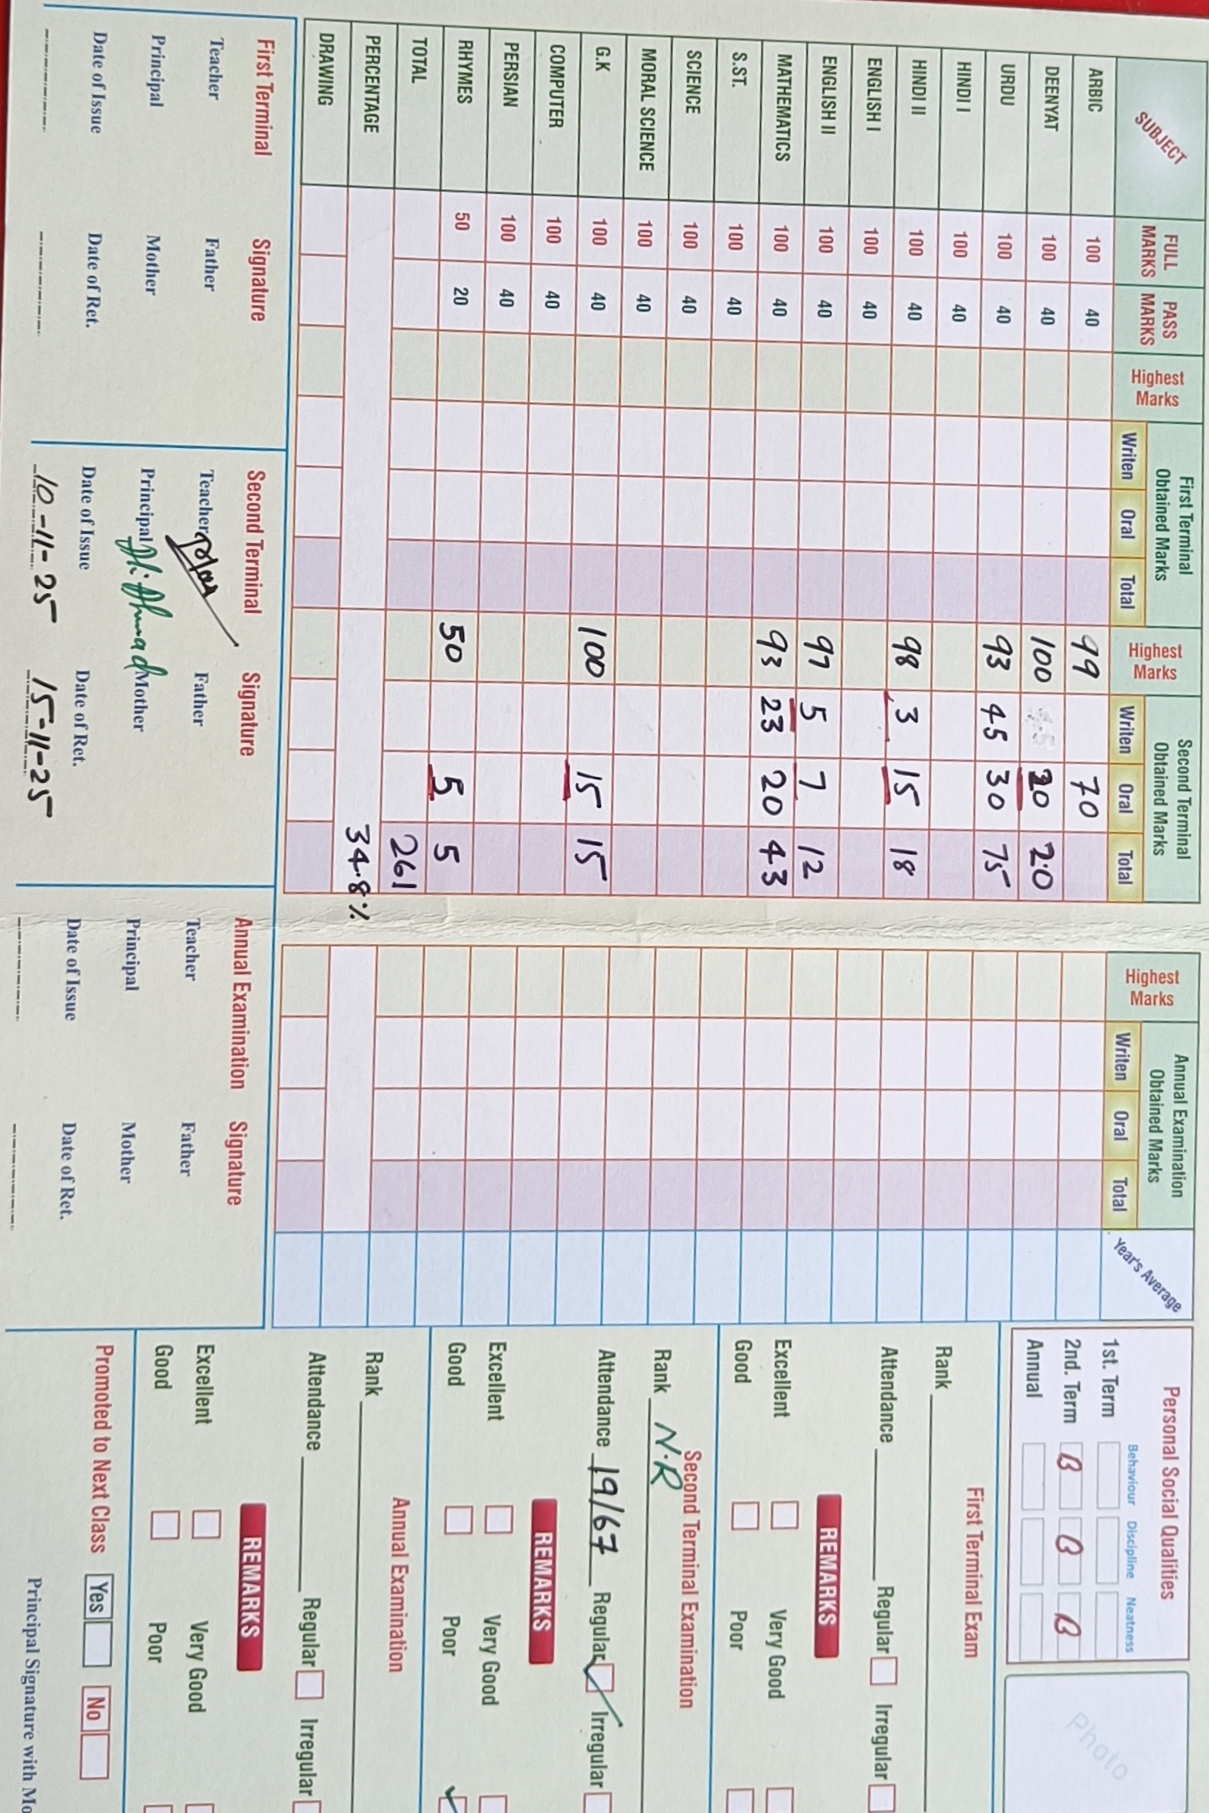 SUBJECT FULL MARKS PASS MARKS Highest Marks First Terminal Obtained Marks Writen Oral Total Highest Marks Second Terminal Obtained Marks Writen Oral Total Highest Marks Annual Examination Obtained Marks Writen Oral Total Year's Average
ARBIC 100 40 99 70
DEENYAT 100 40 100 20 20
URDU 100 40 93 45 30 75
HINDI I 100 40
HINDI II 100 40 98 3 15 18
ENGLISH I 100 40
ENGLISH II 100 40 97 5 7 12
MATHEMATICS 100 40 93 23 20 43
S.ST. 100 40
SCIENCE 100 40
MORAL SCIENCE 100 40
G.K 100 40 100 15 15
COMPUTER 100 40
PERSIAN 100 40
RHYMES 50 20 50 5 5
TOTAL 261
PERCENTAGE 34.8%
DRAWING
First Terminal Signature
Teacher Father
Principal Mother
Date of Issue Date of Ret.
Second Terminal Signature
Teacher Father
Principal Ali Ahmad Mother
Date of Issue Date of Ret.
10-11-25 15-11-25
Annual Examination Signature
Teacher Father
Principal Mother
Date of Issue Date of Ret.
Personal Social Qualities
Behaviour Discipline Neatness
1st. Term
2nd. Term B B B
Annual
Photo
First Terminal Exam
Rank
Attendance Regular Irregular
REMARKS
Excellent Very Good
Good Poor
Second Terminal Examination
Rank N.R
Attendance 19/67 Regular Irregular
REMARKS
Excellent Very Good
Good Poor
Annual Examination
Rank
Attendance Regular Irregular
REMARKS
Excellent Very Good
Good Poor
Promoted to Next Class Yes No
Principal Signature with